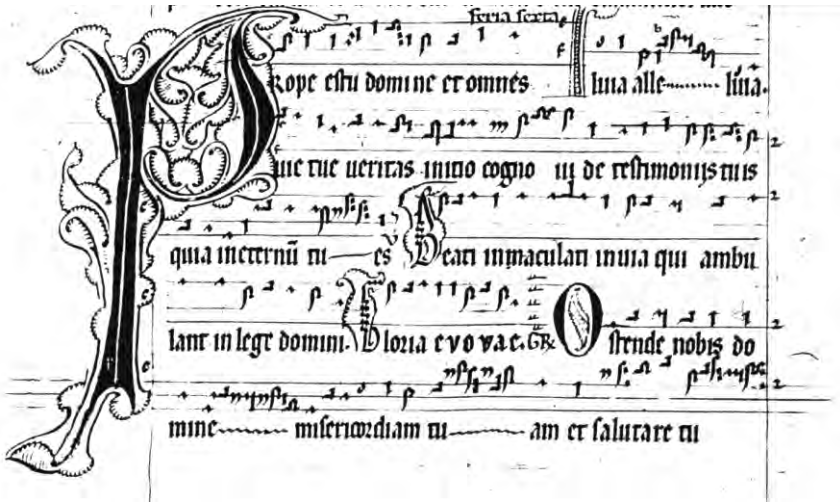 feria sexta
Prope estu domine et omnes luia alle luia.
uie tue ueritas initio cogno ui de testimonijs tuis
quia ineternū tu es Beati inmaculati inuia qui ambu
lant in lege domini. Gloria evovae. GR Ostende nobis do
mine misericordiam tu am et salutare tu